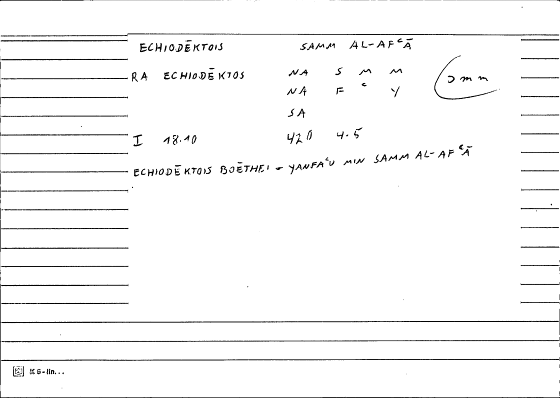 ECHIODĒKTOIS SAMM AL-AFᶜĀ
RA ECHIODĒKTOS NA S M M
NA F ᶜ Y
SA
I 18.10 420 4.5
ECHIODĒKTOIS BOĒTHEI - YANFAᶜU MIN SAMM AL-AFᶜĀ